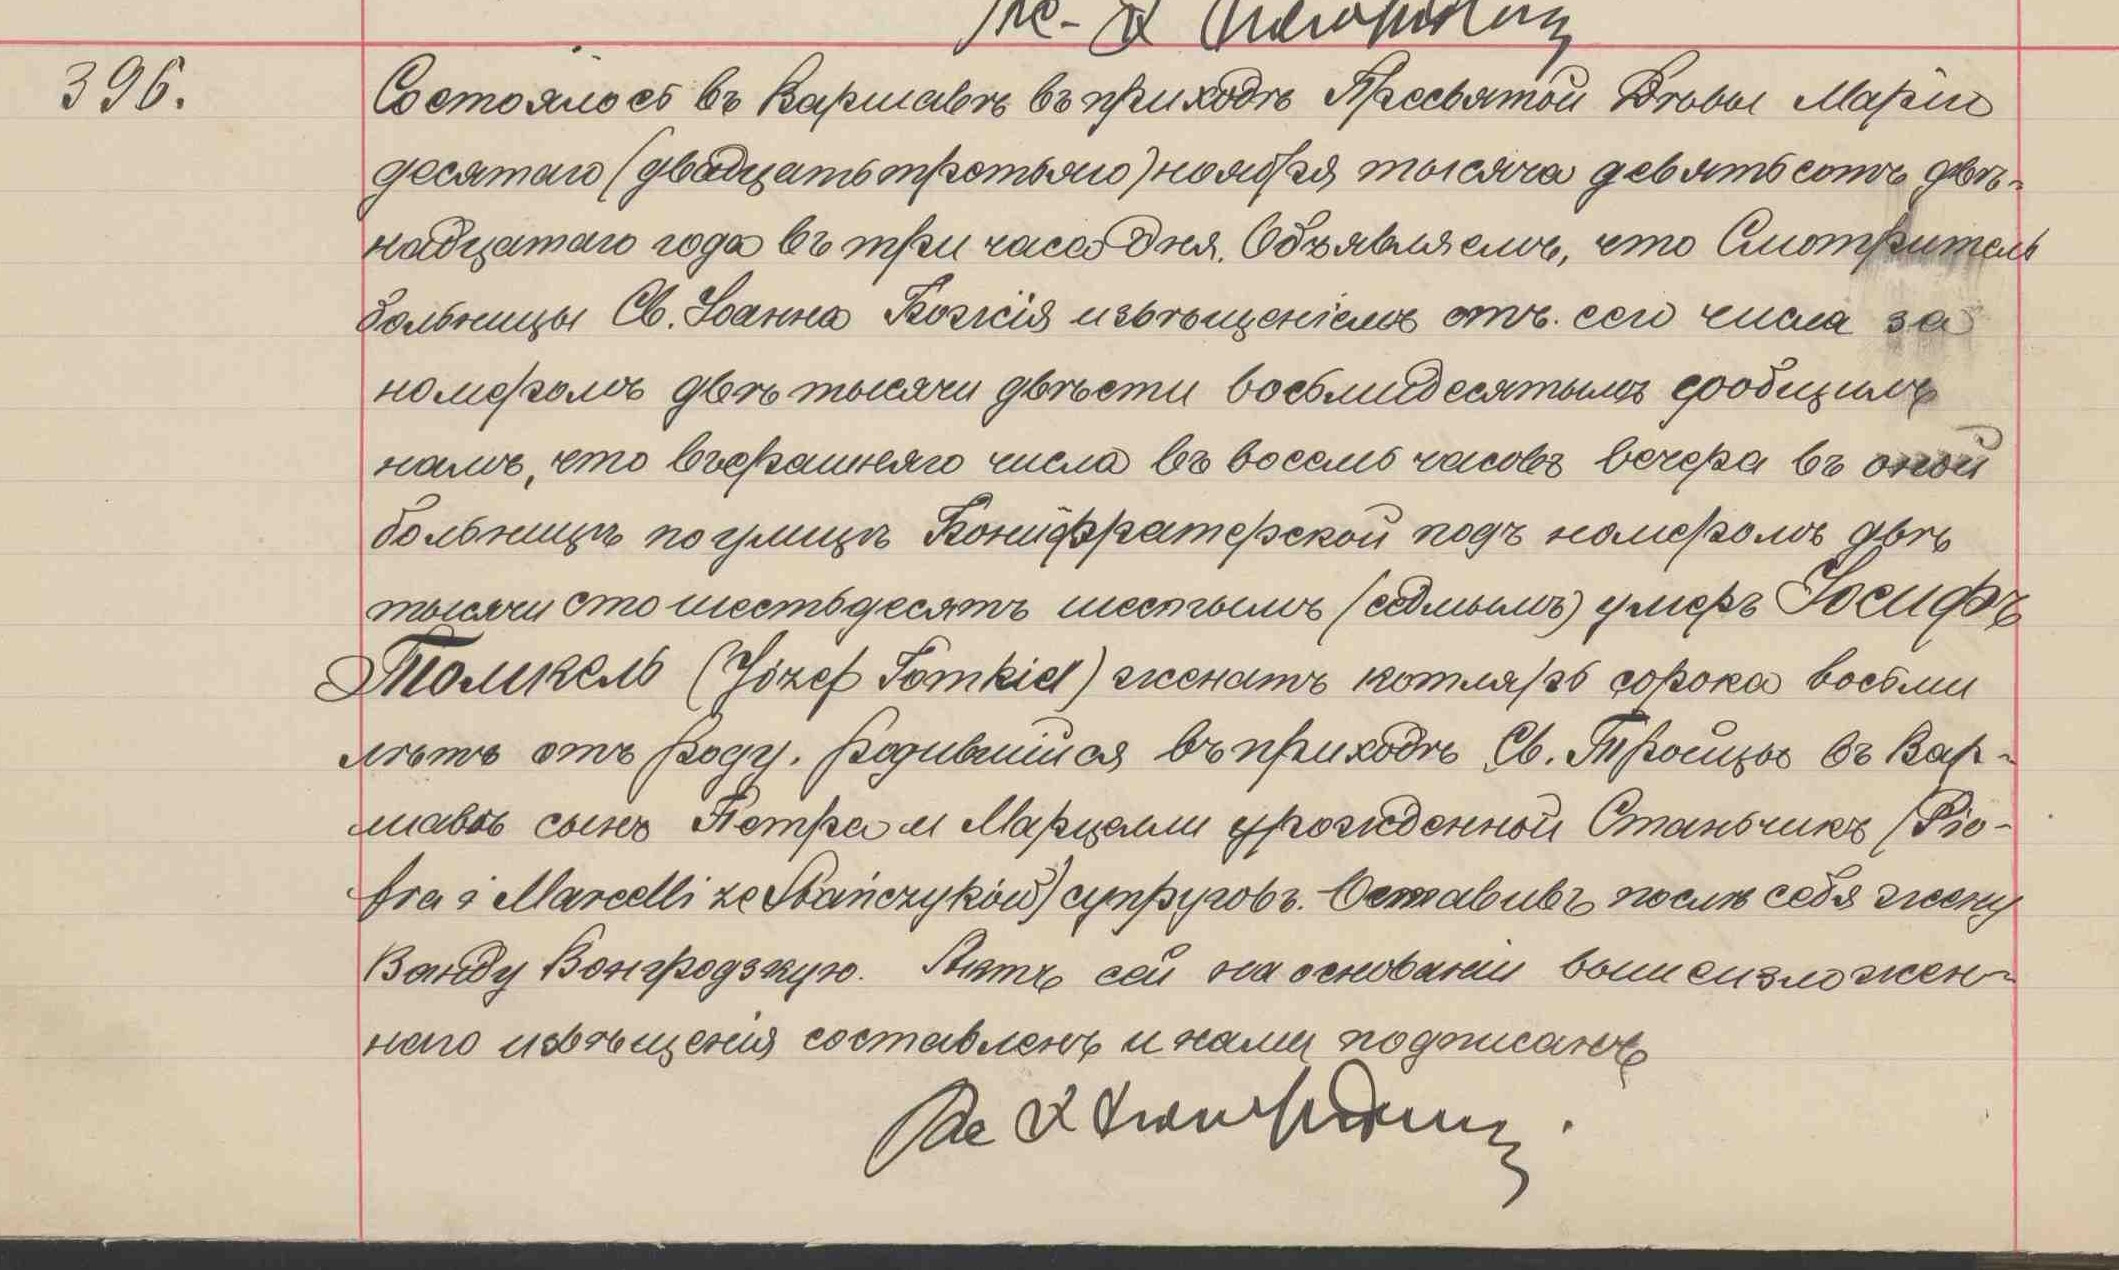 396.
Состоялось въ Варшавѣ въ приходѣ Пресвятой Дѣвы Маріи
десятаго (двадцать третьяго) ноября тысяча девятьсотъ двѣ-
надцатаго года въ три часа дня. Объявляемъ, что Смотритель
больницы Св. Іоанна Божія извѣщеніемъ отъ сего числа за
номеромъ двѣ тысячи двѣсти восьмидесятымъ сообщилъ
намъ, что вчерашняго числа въ восемь часовъ вечера въ оной
больницѣ по улицѣ Бонифратерской подъ номеромъ двѣ
тысячи сто шестьдесятъ шестымъ (седмымъ) умеръ Іосифъ
Томкель (Józef Tomkiel) женатъ котляръ сорока восьми
лѣтъ отъ роду, родившійся въ приходѣ Св. Тройцы въ Вар-
шавѣ сынъ Петра и Марцелли урожденной Станьчикъ (Pio-
tra i Marcelli ze Stańczyków) супруговъ. Оставивъ послѣ себя жену
Ванду Вонгродзкую. Актъ сей на основаніи вышеизложен-
наго извѣщенія составленъ и нами подписанъ